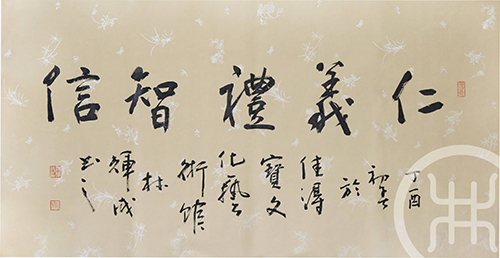 仁義禮智信
丁酉
初
於
佳得
寶文
化藝
術館
林
輝成
書之